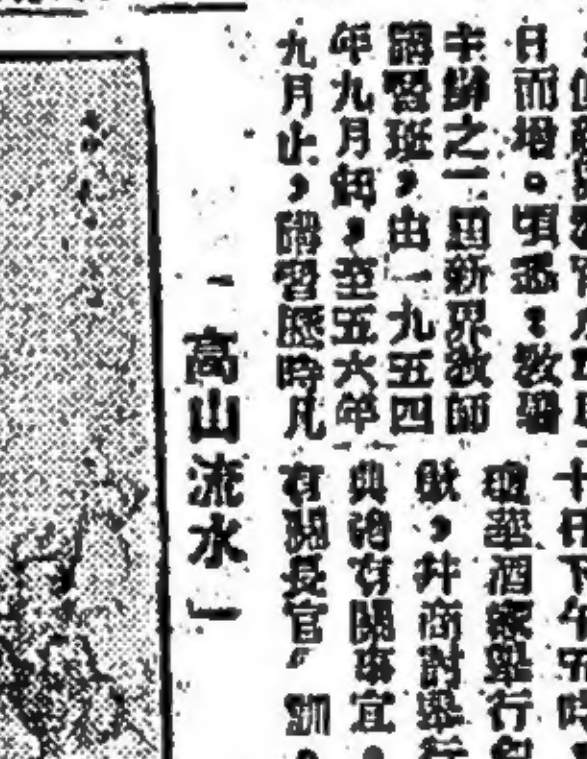 日而增。頃悉：教署
主辦之一屆新界教師
講習班，由一九五四
年九月起，至五六年
九月止，講習歷時凡
十日下午五時
瓊華酒家舉行
，并商討舉行
典禮有關事宜。
有關長官 訓
「高山流水」